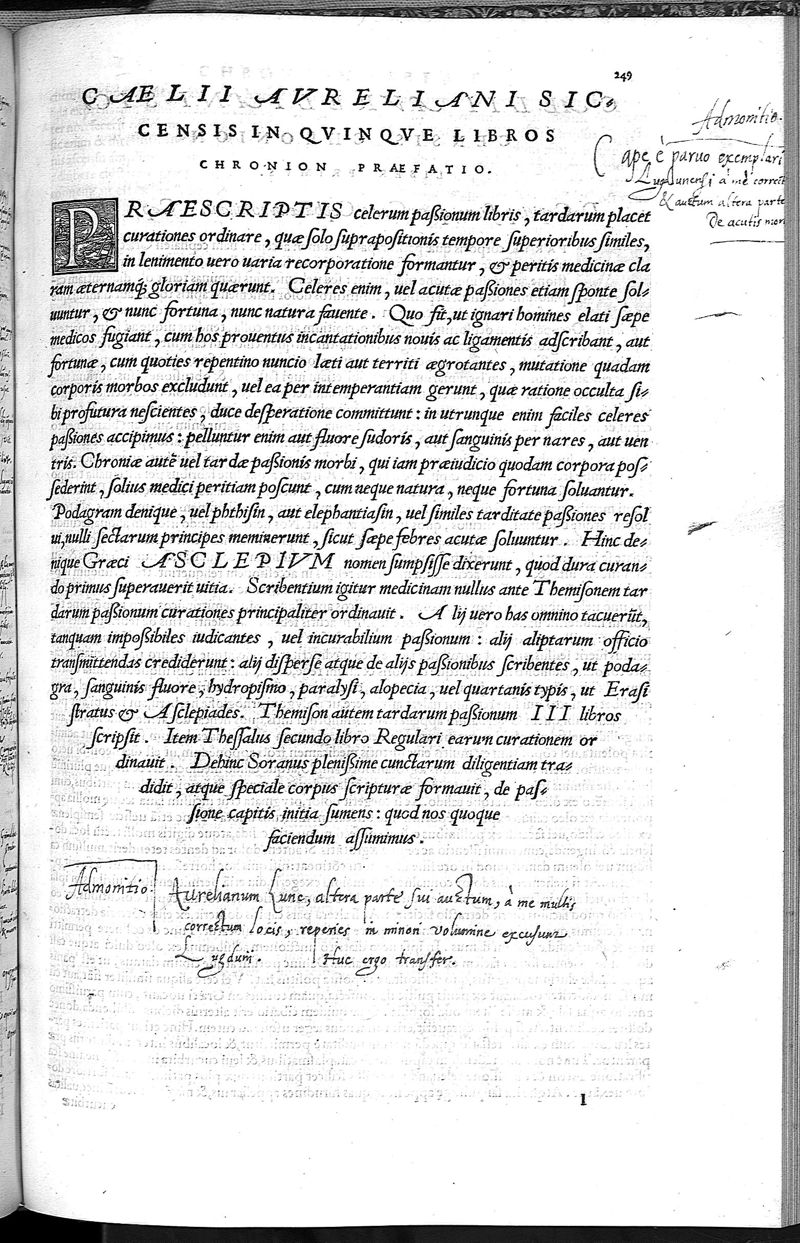 249
CAELII AVRELIANI SIC-
CENSIS IN QVINQVE LIBROS
CHRONION PRAEFATIO.
Admonitio.
Cape è paruo exemplari
Lugdunensi à me correct
& auctum altera parte
De acutis mor
PRAESCRIPTIS celerum paßionum libris, tardarum placet
curationes ordinare, quæ solo suprapositionis tempore superioribus similes,
in lenimento uero uaria recorporatione formantur, & peritis medicinæ cla
ram æternamq; gloriam quærunt. Celeres enim, uel acutæ paßiones etiam sponte sol-
uuntur, & nunc fortuna, nunc natura fauente. Quo fit, ut ignari homines elati sæpe
medicos fugiant, cum hos prouentus incantationibus nouis ac ligamentis adscribant, aut
fortunæ, cum quoties repentino nuncio læti aut territi ægrotantes, mutatione quadam
corporis morbos excludunt, uel ea per intemperantiam gerunt, quæ ratione occulta si-
bi profutura nescientes, duce desperatione committunt: in utrunque enim faciles celeres
paßiones accipimus: pelluntur enim aut fluore sudoris, aut sanguinis per nares, aut uen
tris. Chroniæ autē uel tardæ paßionis morbi, qui iam præiudicio quodam corpora pos-
sederint, solius medici peritiam poscunt, cum neque natura, neque fortuna soluantur.
Podagram denique, uel phthisin, aut elephantiasin, uel similes tarditate paßiones resol
ui, nulli sectarum principes meminerunt, sicut sæpe febres acutæ soluuntur. Hinc de-
nique Græci ASCLEPIVM nomen sumpsisse dixerunt, quod dura curan-
do primus superauerit uitia. Scribentium igitur medicinam nullus ante Themisonem tar
darum paßionum curationes principaliter ordinauit. Alij uero has omnino tacuerūt,
tanquam impoßibiles iudicantes, uel incurabilium paßionum: alij aliptarum officio
transmittendas crediderunt: alij disperse atque de alijs paßionibus scribentes, ut poda-
gra, sanguinis fluore, hydropismo, paralysi, alopecia, uel quartanis typis, ut Erasi
stratus & Asclepiades. Themison autem tardarum paßionum III libros
scripsit. Item Thessalus secundo libro Regulari earum curationem or
dinauit. Dehinc Soranus plenißime cunctarum diligentiam tra-
didit, atque speciale corpus scripturæ formauit, de pas-
sione capitis initia sumens: quod nos quoque
faciendum assumimus.
Admonitio.
Aurelianum hunc, altera parte sui auctum, à me multis
correctum locis, reperies in minori volumine excusum
Lugduni. Huc ergo transfer.
I